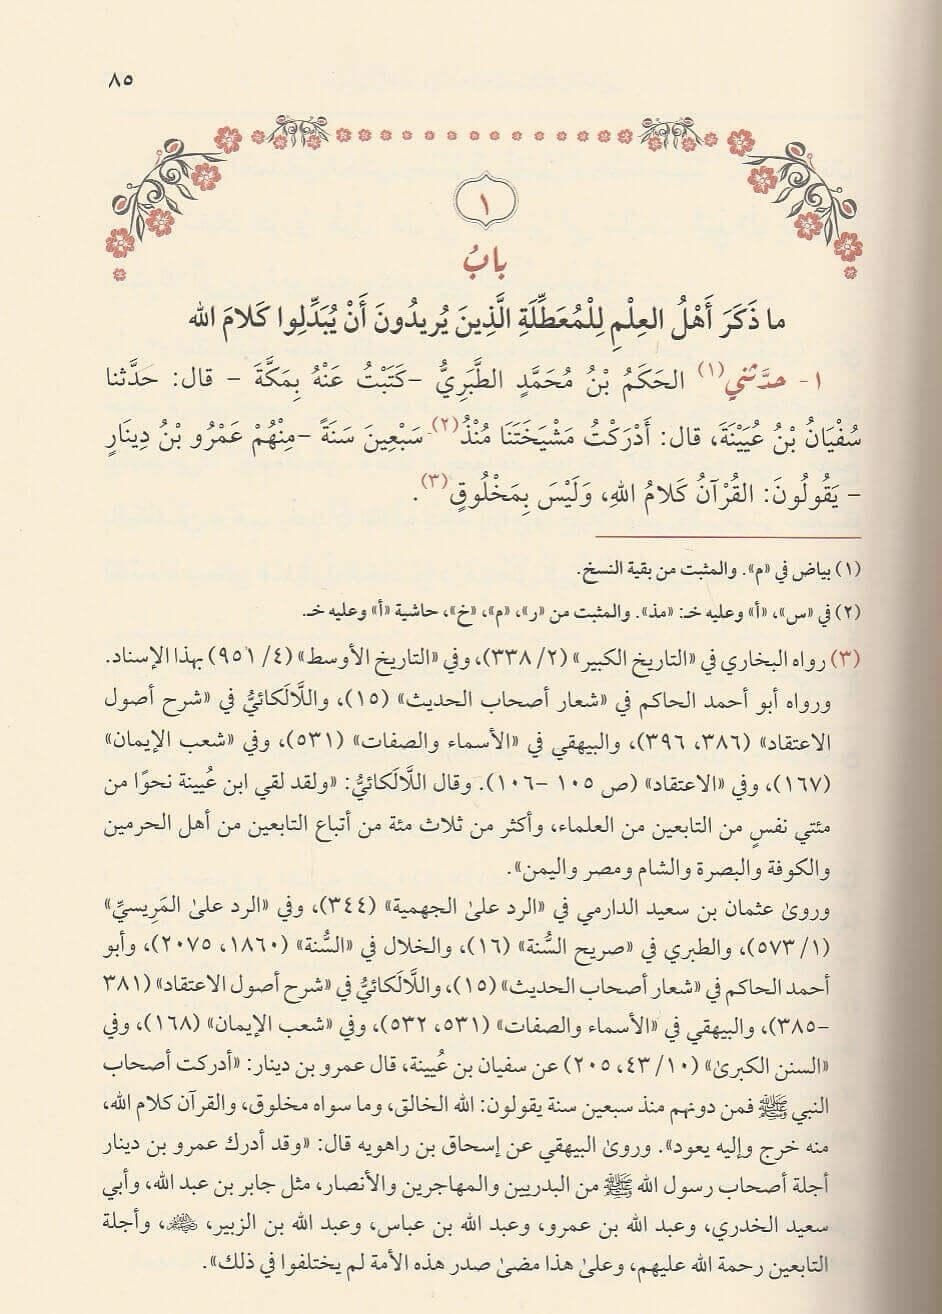 ٨٥
١
بابُ
ما ذَكَرَ أَهْلُ العِلْمِ لِلْمُعَطِّلَةِ الَّذِينَ يُرِيدُونَ أَنْ يُبَدِّلوا كَلامَ الله
١- حدَّثني(١) الحَكَمُ بْنُ مُحَمَّدٍ الطَّبَرِيُّ –كَتَبْتُ عَنْهُ بِمَكَّةَ – قال: حدَّثنا
سُفْيَانُ بْنُ عُيَيْنَةَ، قال: أَدْرَكْتُ مَشْيَخَتَنَا مُنْذُ(٢) سَبْعِينَ سَنَةً –مِنْهُمْ عَمْرُو بْنُ دِينَارٍ
– يَقُولُونَ: القُرْآنُ كَلامُ اللهِ، وَلَيْسَ بِمَخْلُوقٍ(٣).
(١) بياض في «م». والمثبت من بقية النسخ.
(٢) في «س»، «أ» وعليه خـ: «مذ». والمثبت من «ر»، «م»، «خ»، حاشية «أ» وعليه خـ.
(٣) رواه البخاري في «التاريخ الكبير» (٢/ ٣٣٨)، وفي «التاريخ الأوسط» (٤/ ٩٥١) بهذا الإسناد.
ورواه أبو أحمد الحاكم في «شعار أصحاب الحديث» (١٥)، واللَّالَكائيُّ في «شرح أصول
الاعتقاد» (٣٨٦، ٣٩٦)، والبيهقي في «الأسماء والصفات» (٥٣١)، وفي «شعب الإيمان»
(١٦٧)، وفي «الاعتقاد» (ص ١٠٥ –١٠٦). وقال اللَّالَكائيُّ: «ولقد لقي ابن عُيينة نحوًا من
مئتي نفسٍ من التابعين من العلماء، وأكثر من ثلاث مئة من أتباع التابعين من أهل الحرمين
والكوفة والبصرة والشام ومصر واليمن».
وروىٰ عثمان بن سعيد الدارمي في «الرد علىٰ الجهمية» (٣٤٤)، وفي «الرد علىٰ المَرِيسيِّ»
(١/ ٥٧٣)، والطبري في «صريح السُّنة» (١٦)، والخلال في «السُّنة» (١٨٦٠، ٢٠٧٥)، وأبو
أحمد الحاكم في «شعار أصحاب الحديث» (١٥)، واللَّالَكائيُّ في «شرح أصول الاعتقاد» (٣٨١
–٣٨٥)، والبيهقي في «الأسماء والصفات» (٥٣١، ٥٣٢)، وفي «شعب الإيمان» (١٦٨)، وفي
«السنن الكبرىٰ» (١٠/ ٤٣، ٢٠٥) عن سفيان بن عُيينة، قال عمرو بن دينار: «أدركت أصحاب
النبي ﷺ فمن دونهم منذ سبعين سنة يقولون: الله الخالق، وما سواه مخلوق، والقرآن كلام الله،
منه خرج وإليه يعود». وروىٰ البيهقي عن إسحاق بن راهويه قال: «وقد أدرك عمرو بن دينار
أجلة أصحاب رسول الله ﷺ من البدريين والمهاجرين والأنصار، مثل جابر بن عبد الله، وأبي
سعيد الخدري، وعبد الله بن عمرو، وعبد الله بن عباس، وعبد الله بن الزبير، ، وأجلة
التابعين رحمة الله عليهم، وعلىٰ هذا مضىٰ صدر هذه الأمة لم يختلفوا في ذلك».